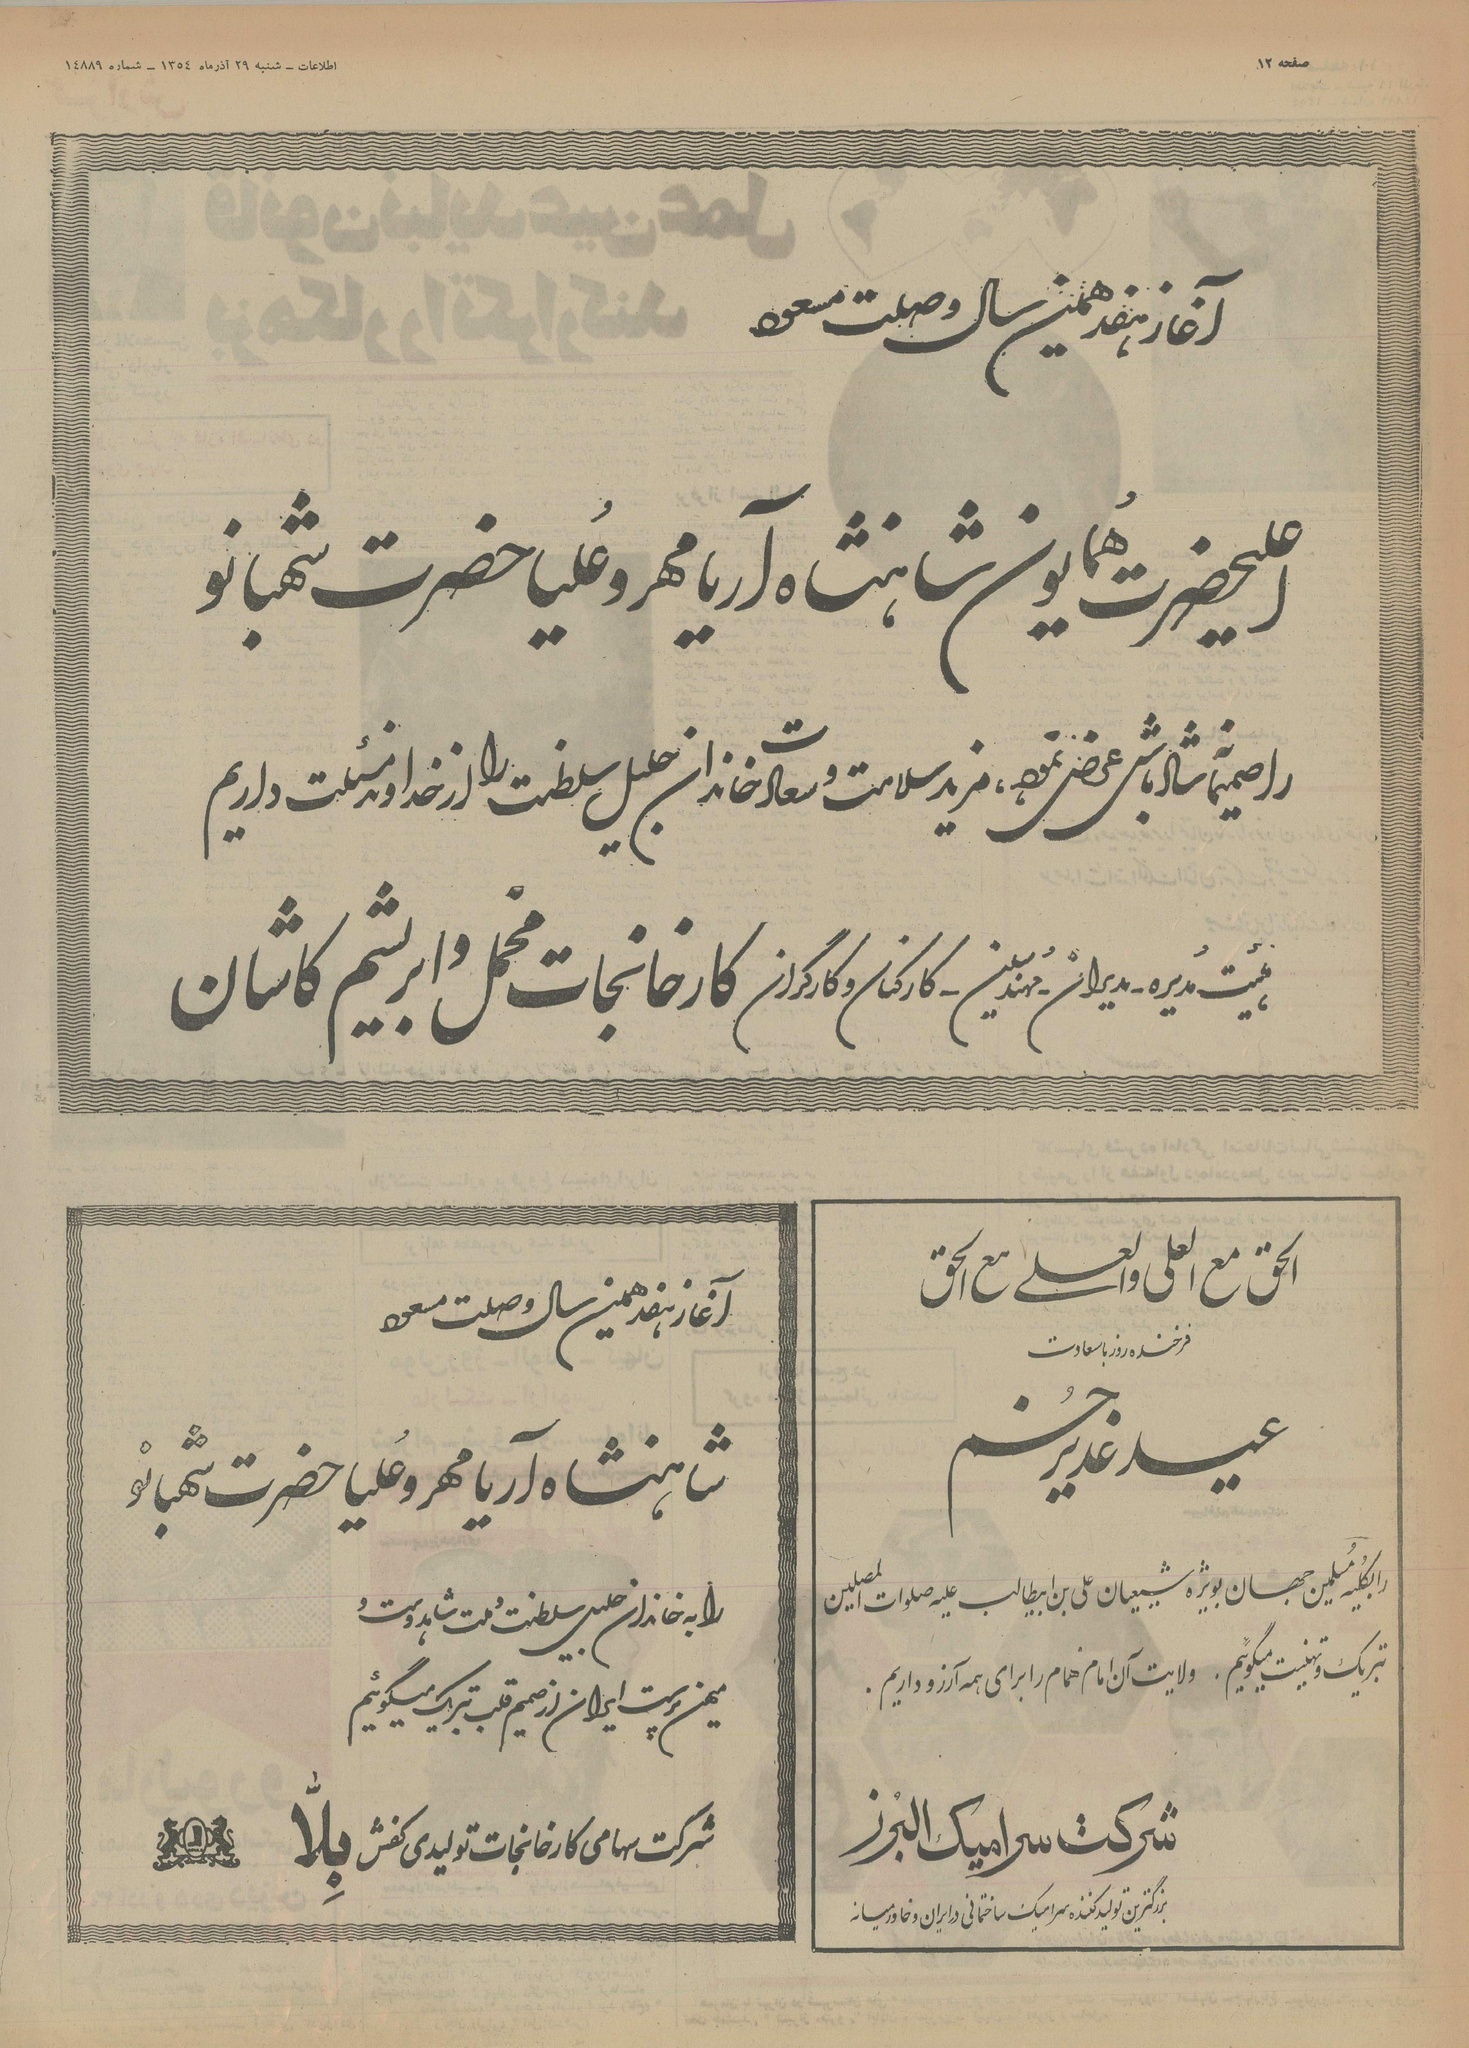 صفحه ۱۲
اطلاعات ـ شنبه ۲۹ آذرماه ۱۳۵۴ ـ شماره ۱۴۸۸۹
آغاز هفدهمین سال وصلت مسعود
اعلیحضرت همایون شاهنشاه آریامهر و علیا حضرت شهبانو
را صمیمانه شادباش عرض نموده، مزید سلامت و سعادت خاندان جلیل سلطنت را از خداوند مسئلت داریم
هیئت مدیره ـ مدیران ـ مهندسین ـ کارکنان و کارگران کارخانجات مخمل و ابریشم کاشان
الحق مع العلی والعلی مع الحق
فرخنده روز باسعادت
عید غدیر خم
را بکلیه مسلمین جهان بویژه شیعیان علی بن ابیطالب علیه صلوات المصلین
تبریک و تهنیت میگوئیم . ولایت آن امام همام را برای همه آرزو داریم .
شرکت سرامیک البرز
بزرگترین تولید کننده سرامیک ساختمانی در ایران و خاورمیانه
آغاز هفدهمین سال وصلت مسعود
شاهنشاه آریامهر و علیا حضرت شهبانو
را به خاندان جلیل سلطنت و ملت شاهدوست و
میهن پرست ایران از صمیم قلب تبریک میگوئیم
شرکت سهامی کارخانجات تولیدی کفش بِلّا